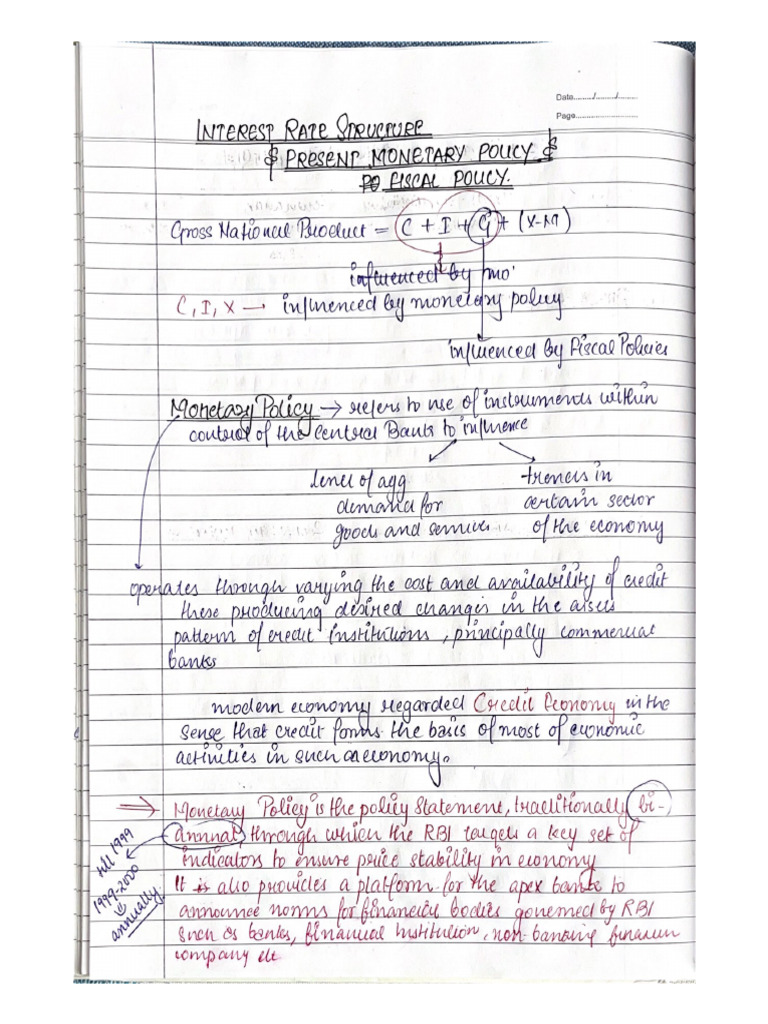 Date......./......./.......
Page.......................
INTEREST RATE STRUCTURE
& PRESENT MONETARY POLICY &
FISCAL POLICY.
Gross National Product = C + I + G + (X-M)
influenced by mo
C, I, X → influenced by monetary policy
influenced by Fiscal Policies
Monetary Policy → refers to use of instruments within
control of the Central Bank to influence
level of agg
demand for
goods and services
trends in
certain sector
of the economy
operates through varying the cost and availability of credit
these producing desired changes in the assets
pattern of credit institutions, principally commercial
banks
modern economy regarded Credit Economy in the
sense that credit forms the basis of most of economic
activities in such an economy.
⇒ Monetary Policy is the policy statement, traditionally bi-
annual, through which the RBI targets a key set of
indicators to ensure price stability in economy
It is also provides a platform for the apex bank to
announce norms for financial bodies governed by RBI
such as banks, financial institution, non-banking financial
company etc
till 1999
1999-2000
annually